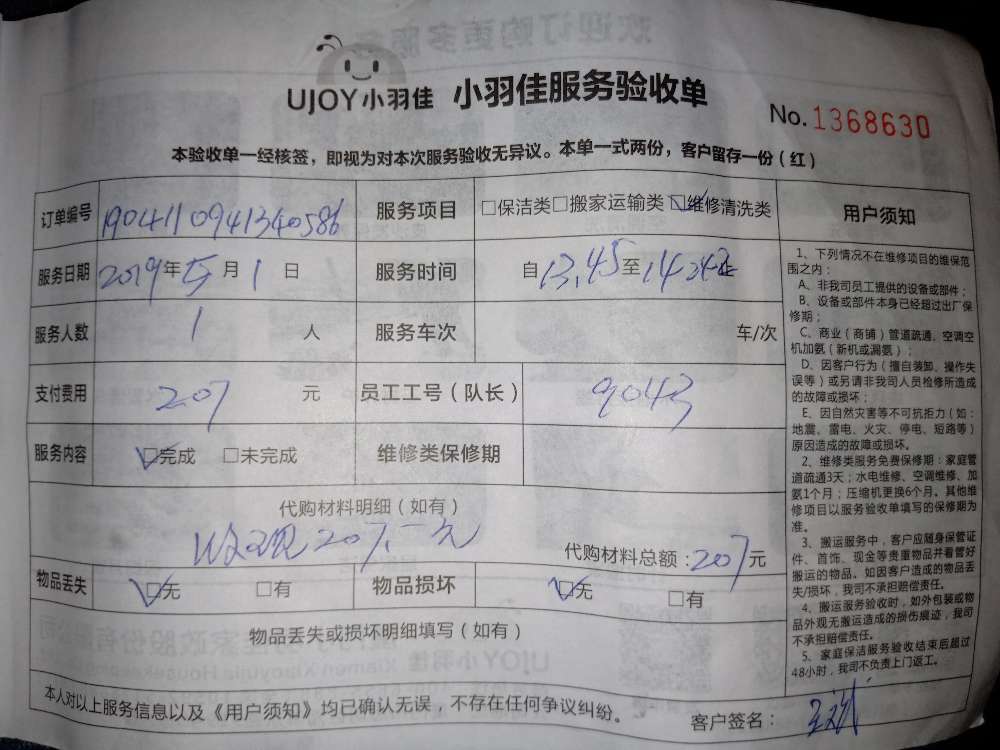 UJOY小羽佳 小羽佳服务验收单
No.1368630
本验收单一经核签，即视为对本次服务验收无异议。本单一式两份，客户留存一份（红）
订单编号 190411094134 0586 服务项目 □保洁类□搬家运输类☑维修清洗类
服务日期 2019年5月1日 服务时间 自13,45至14
服务人数 1人 服务车次 车/次
支付费用 207元 员工工号（队长） 9043
服务内容 ☑完成 □未完成 维修类保修期
代购材料明细（如有）
收现207.一元
代购材料总额：207元
物品丢失 ☑无 □有 物品损坏 ☑无 □有
物品丢失或损坏明细填写（如有）
本人对以上服务信息以及《用户须知》均已确认无误，不存在任何争议纠纷。 客户签名：
用户须知
1、下列情况不在维修项目的维保范
围之内：
A、非我司员工提供的设备或部件；
B、设备或部件本身已经超过出厂保
修期；
C、商业（商铺）管道疏通、空调空
机加氨（新机或漏氨）；
D、因客户行为（擅自装卸、操作失
误等）或另请非我司人员检修所造成
的故障或损坏；
E、因自然灾害等不可抗拒力（如：
地震、雷电、火灾、停电、短路等）
原因造成的故障或损坏。
2、维修类服务免费保修期：家庭管
道疏通3天；水电维修、空调维修、加
氨1个月；压缩机更换6个月。其他维
修项目以服务验收单填写的保修期为
准。
3、搬运服务中，客户应随身保管证
件、首饰、现金等贵重物品并看管好
搬运的物品。如因客户造成的物品丢
失/损坏，我司不承担赔偿责任。
4、搬运服务验收时，如外包装或物
品外观无搬运造成的损伤痕迹，我司
不承担赔偿责任。
5、家庭保洁服务验收结束后超过
48小时，我司不负责上门返工。